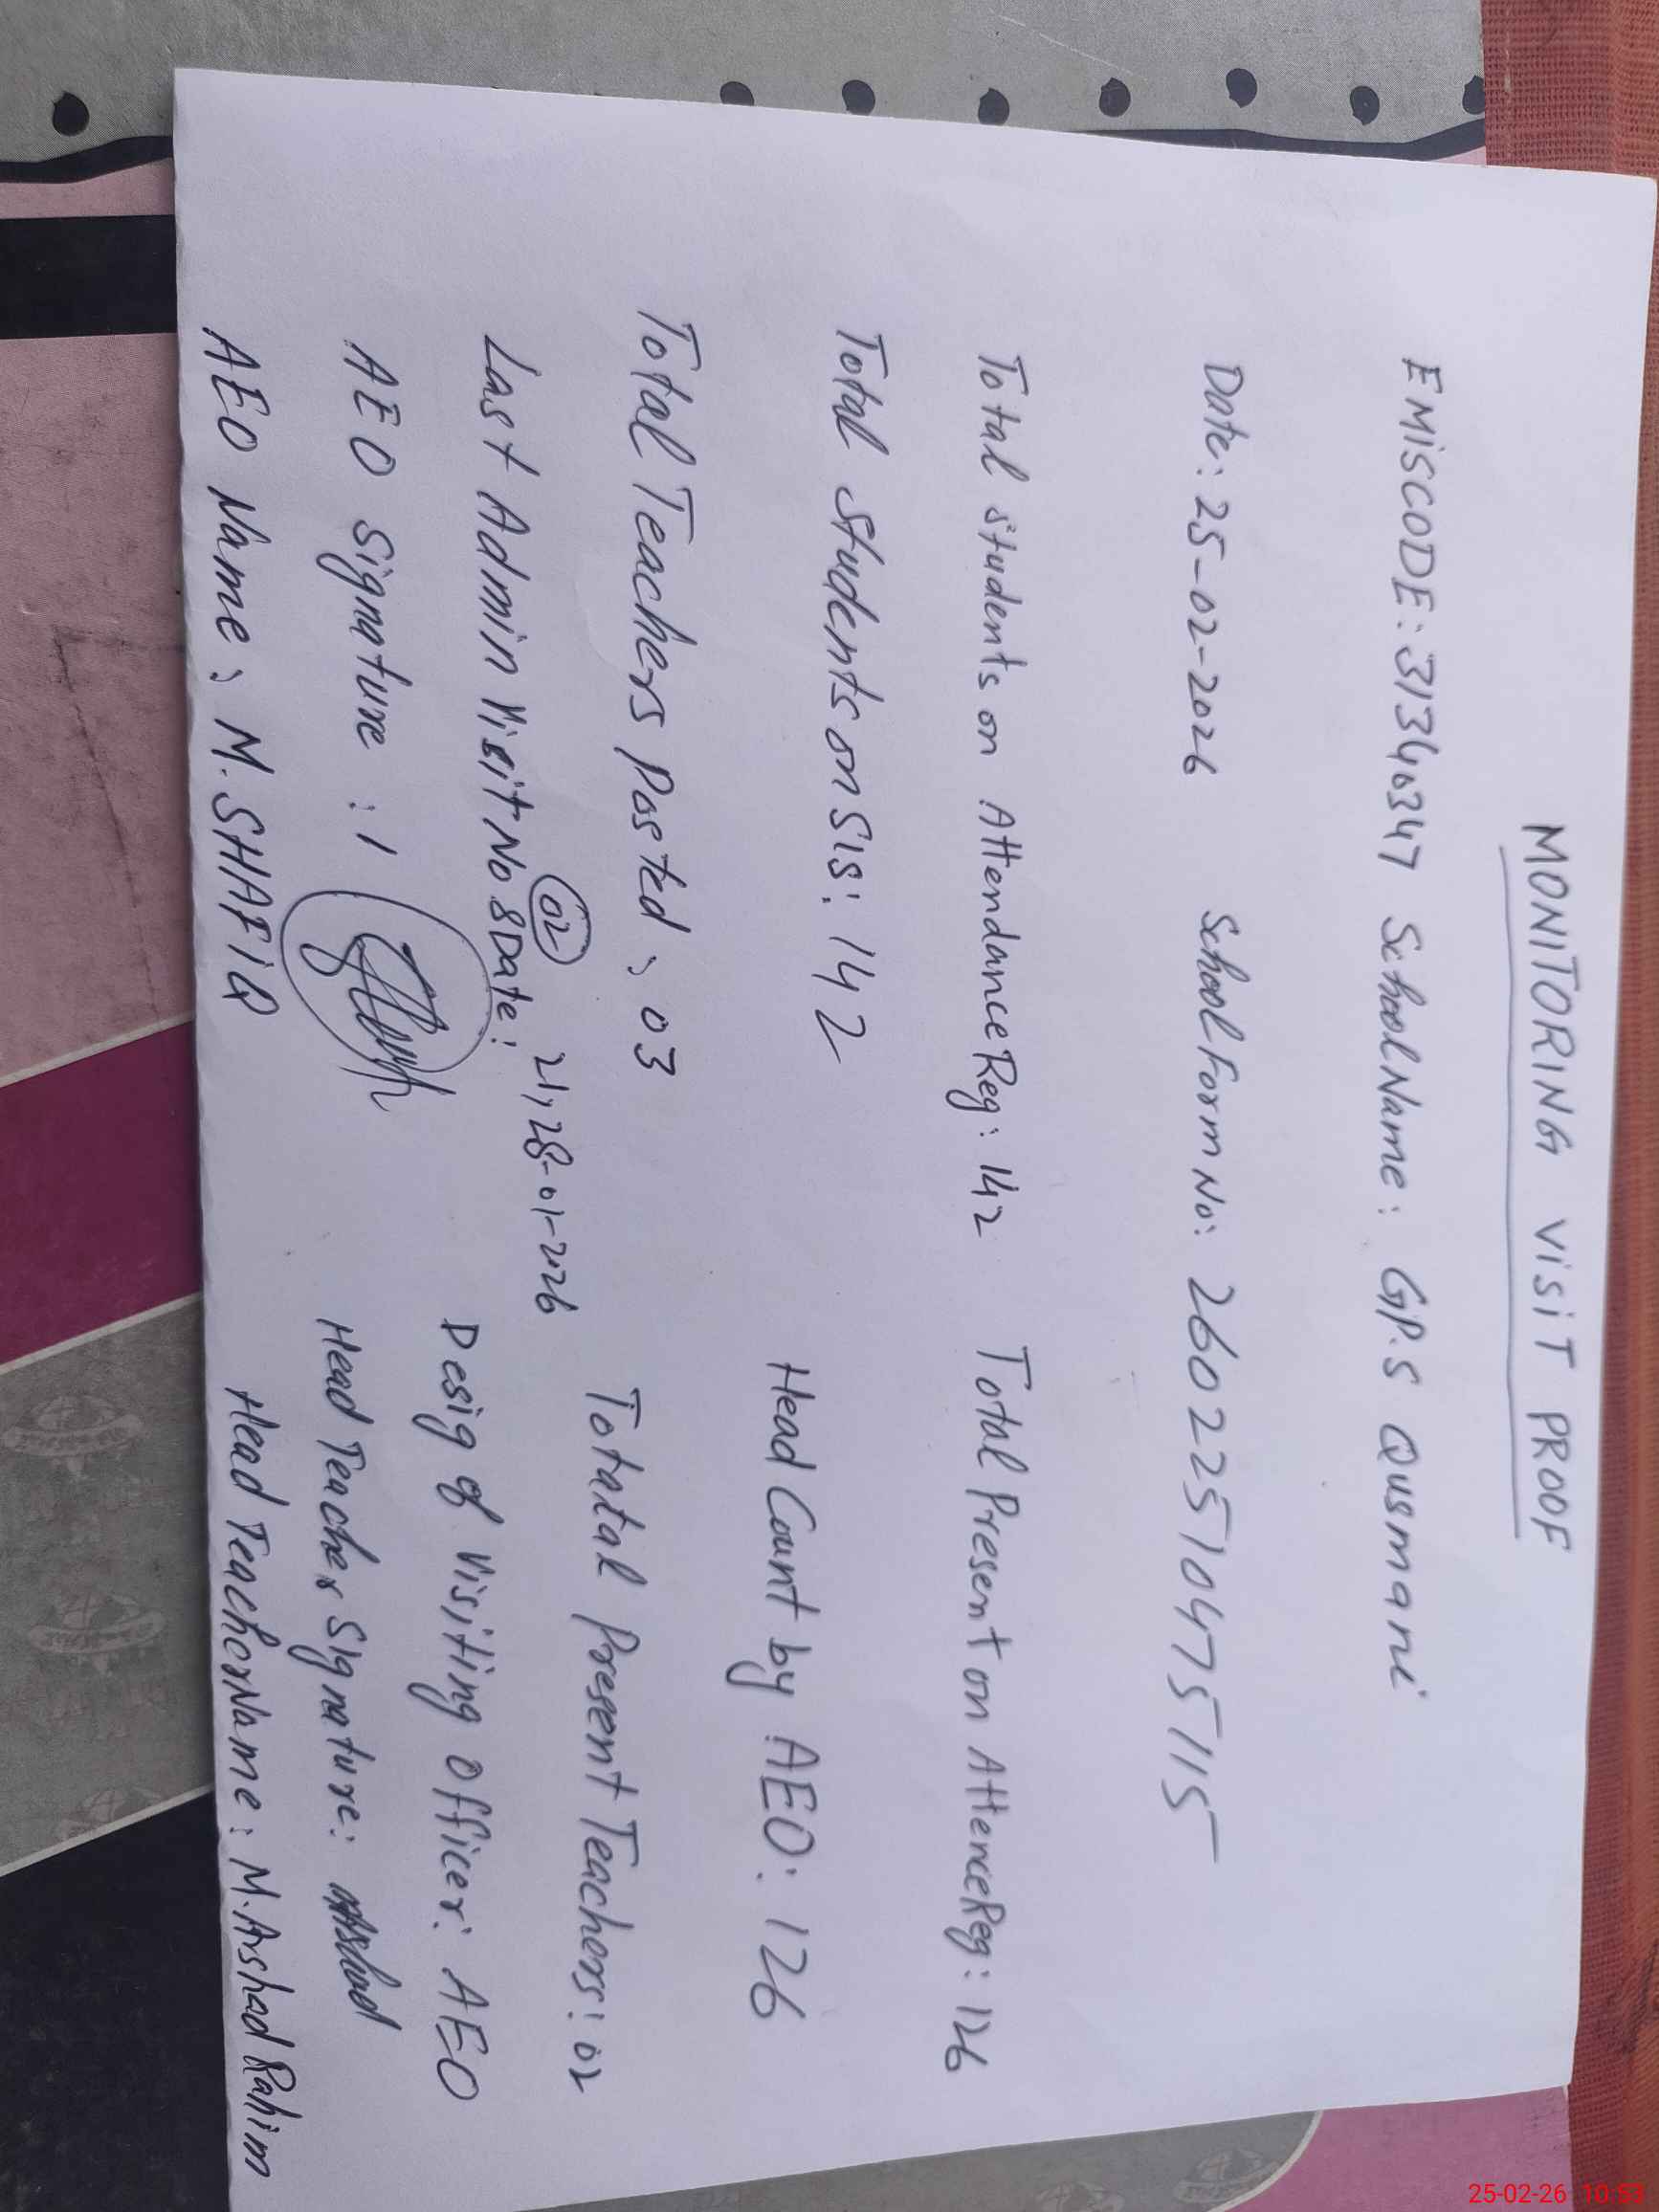 MONITORING VISIT PROOF
EMISCODE: 31340347 School Name: G.P.S Qusmani
Date: 25-02-2026 School Form No: 260225104755115
Total students on Attendance Reg: 142 Total Present on AttenceReg: 126
Total students on SIS: 142 Head Count by AEO: 126
Total Teachers Posted: 03 Totatal Present Teachers: 02
Last Admin Visit No & Date: 02 21,28-01-2026 Desig of Visiting Officer: AEO
AEO Signature: Head Teacher Signature: Arshad
AEO Name: M. SHAFIQ Head Teacher Name: M. Arshad Rahim
25-02-26 10:53